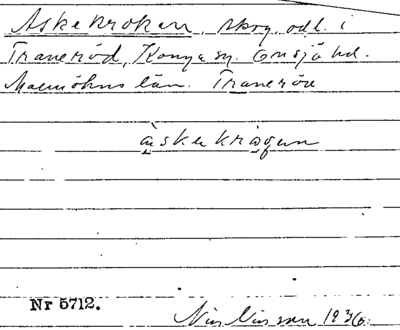 Askekroken, skog, odl. i
Traneröd, Konga sn. Onsjö hd.
Malmöhus län. Traneröd
äskekrågen
Nr 5712.
Nils Nilsson 1936.